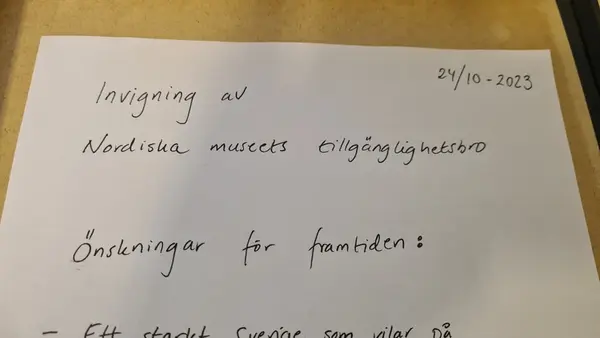 24/10-2023
Invigning av
Nordiska museets tillgänglighetsbro
Önskningar för framtiden:
- Ett starkt Sverige som vilar på